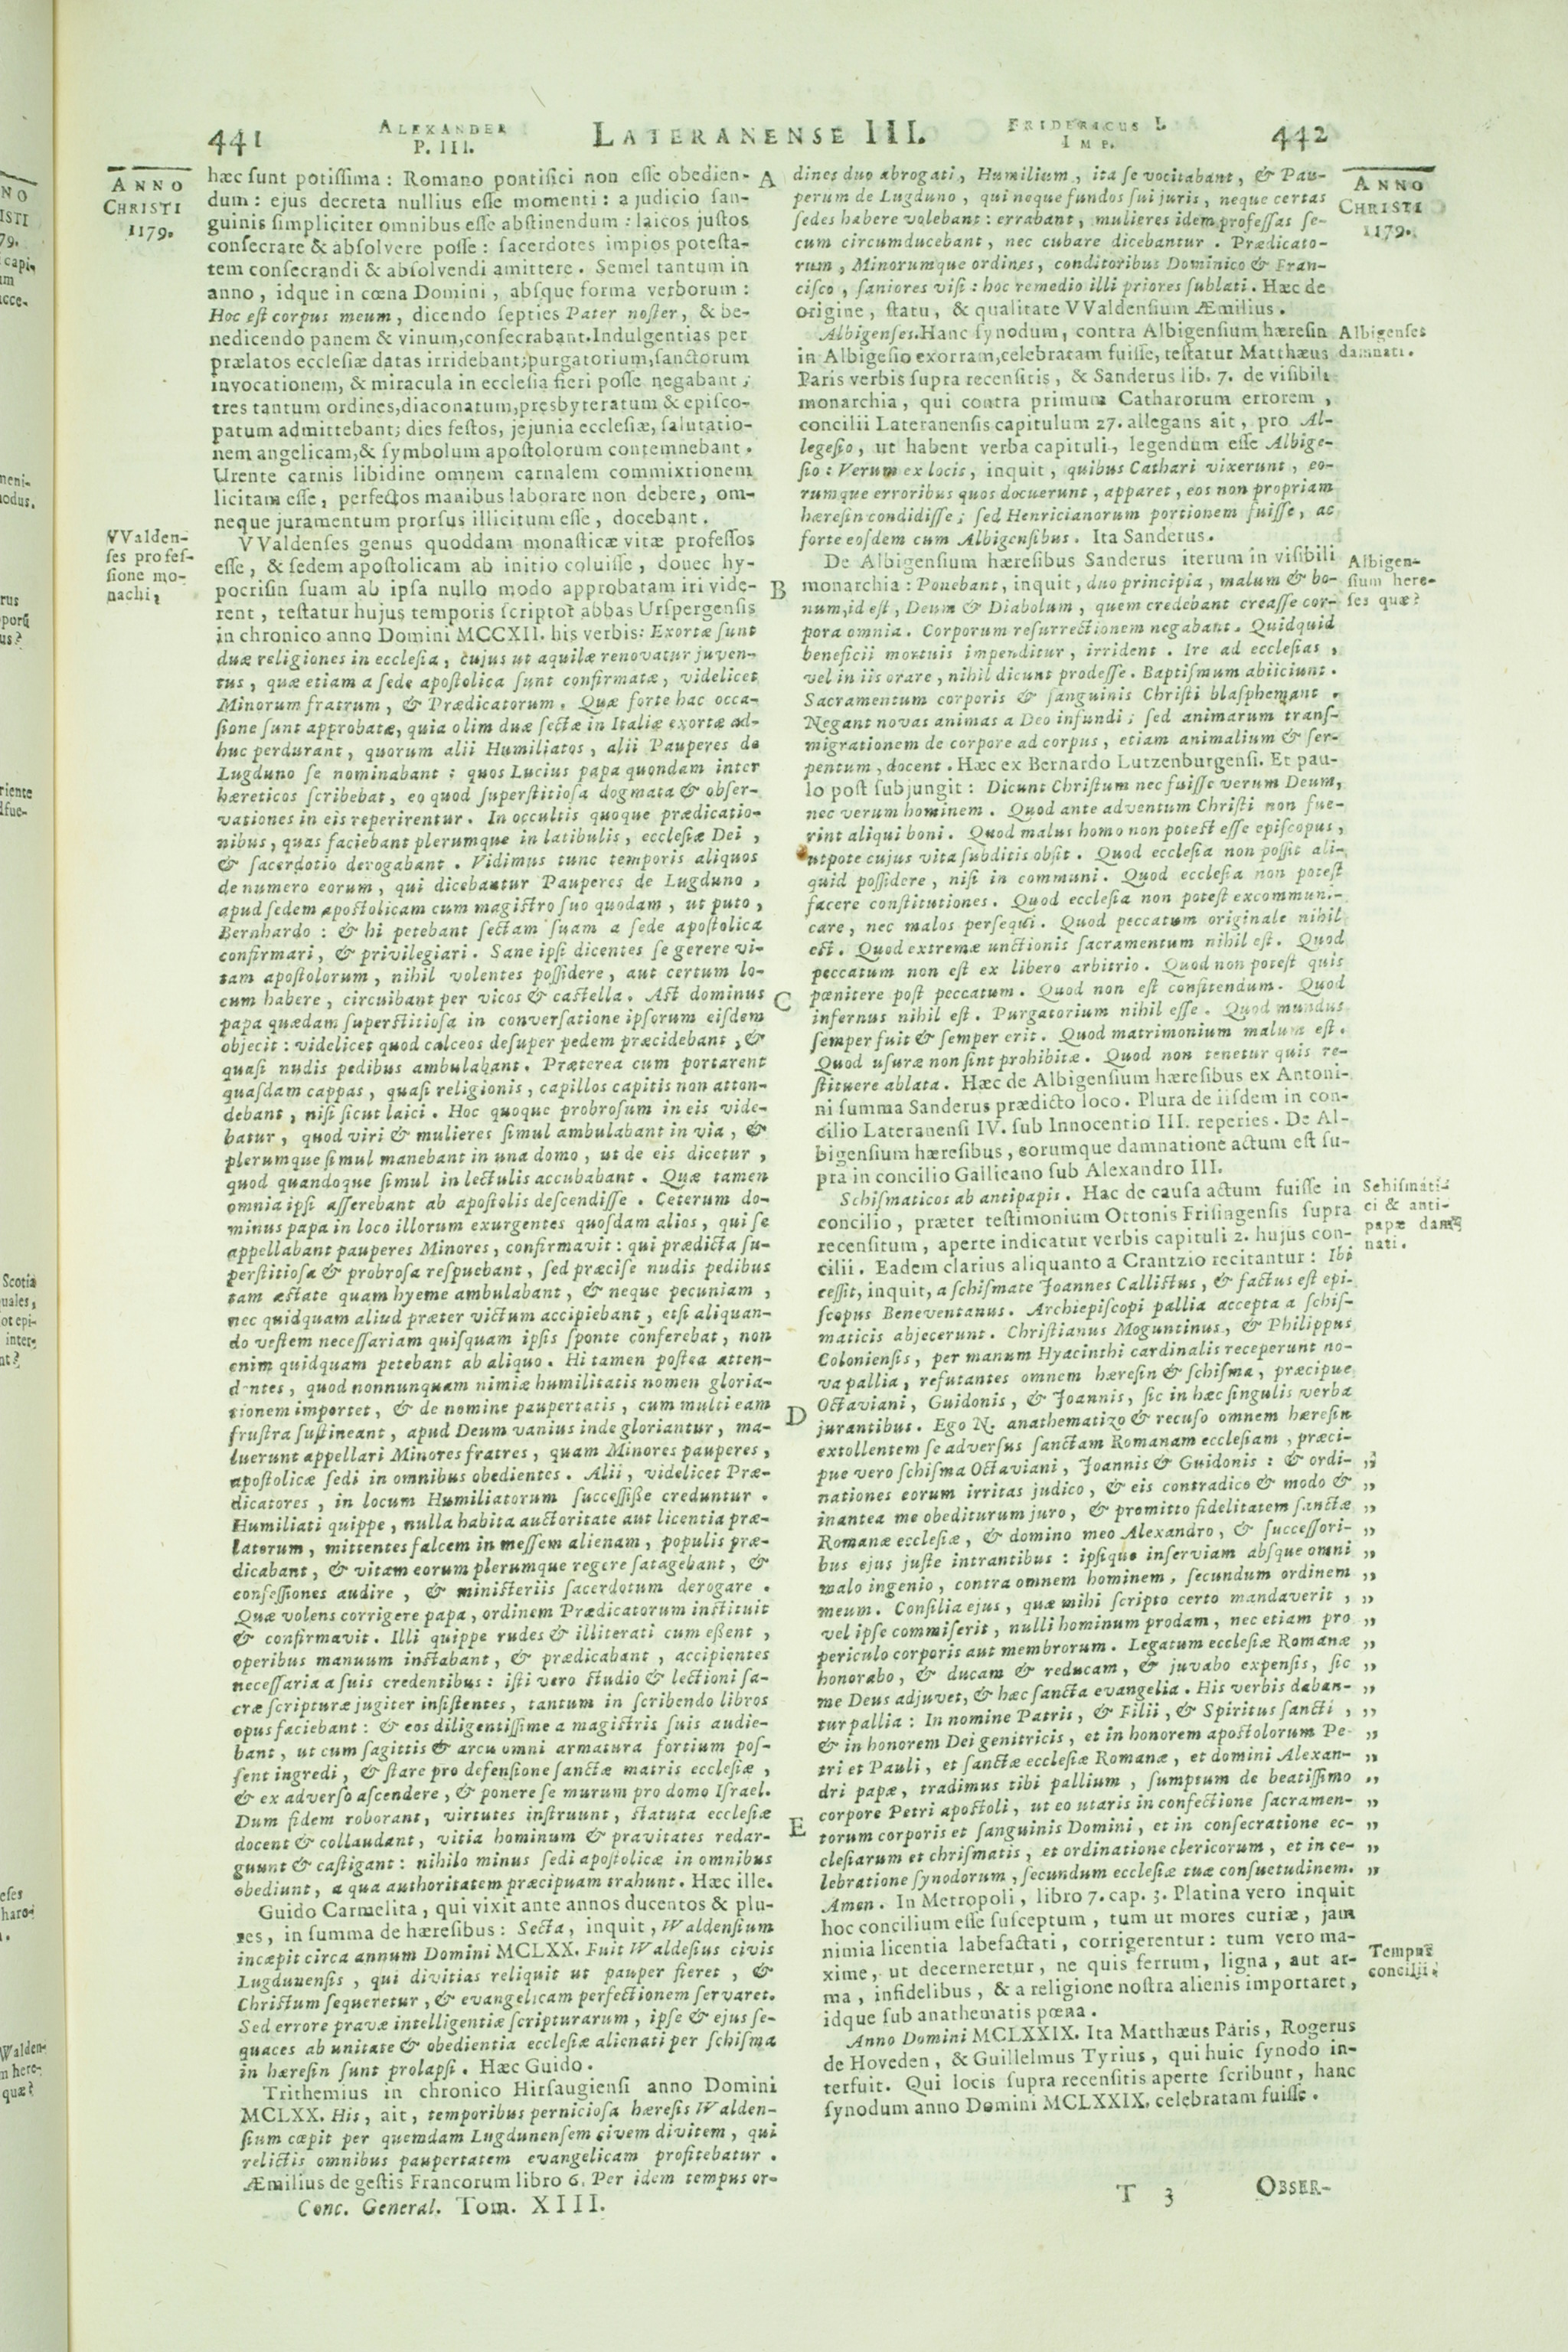 441
ALEXANDER
P. III.
LATERANENSE III.
FRIDERICUS I.
IMP.
442
ANNO
CHRISTI
1179.
hæc sunt potissima: Romano pontifici non esse obedien-
dum: ejus decreta nullius esse momenti: a judicio san-
guinis simpliciter omnibus esse abstinendum: laicos justos
consecrare & absolvere posse: sacerdotes impios potesta-
tem consecrandi & absolvendi amittere. Semel tantum in
anno, idque in cœna Domini, absque forma verborum:
Hoc est corpus meum, dicendo septies Pater noster, & be-
nedicendo panem & vinum, consecrabant. Indulgentias per
prælatos ecclesiæ datas irridebant; purgatorium, sanctorum
invocationem, & miracula in ecclesia fieri posse negabant;
tres tantum ordines, diaconatum, presbyteratum & episco-
patum admittebant; dies festos, jejunia ecclesiæ, salutatio-
nem angelicam, & symbolum apostolorum contemnebant.
Urente carnis libidine omnem carnalem commixtionem
licitam esse, perfectos manibus laborare non debere, om-
neque juramentum prorsus illicitum esse, docebant.
VValden-
ses profes-
sione mo-
nachi,
VValdenses genus quoddam monasticæ vitæ professos
esse, & sedem apostolicam ab initio coluisse, donec hy-
pocrisin suam ab ipsa nullo modo approbatam iri vide-
rent, testatur hujus temporis scriptor abbas Urspergensis
in chronico anno Domini MCCXII. his verbis: Exortæ sunt
duæ religiones in ecclesia, cujus ut aquilæ renovatur juven-
tus, quæ etiam a sede apostolica sunt confirmatæ, videlicet
Minorum fratrum, & Prædicatorum. Quæ forte hac occa-
sione sunt approbatæ, quia olim duæ sectæ in Italiæ exortæ ad-
huc perdurant, quorum alii Humiliatos, alii Pauperes de
Lugduno se nominabant: quos Lucius papa quondam inter
hæreticos scribebat, eo quod superstitiosa dogmata & obser-
vationes in eis reperirentur. In occultis quoque prædicatio-
nibus, quas faciebant plerumque in latibulis, ecclesiæ Dei,
& sacerdotio derogabant. Vidimus tunc temporis aliquos
de numero eorum, qui dicebantur Pauperes de Lugduno,
apud sedem apostolicam cum magistro suo quodam, ut puto,
Bernhardo: & hi petebant sectam suam a sede apostolica
confirmari, & privilegiari. Sane ipsi dicentes se gerere vi-
tam apostolorum, nihil volentes possidere, aut certum lo-
cum habere, circuibant per vicos & castella. Ast dominus
papa quædam superstitiosa in conversatione ipsorum eisdem
objecit: videlicet quod calceos desuper pedem præcidebant, &
quasi nudis pedibus ambulabant. Præterea cum portarent
quasdam cappas, quasi religionis, capillos capitis non atton-
debant, nisi sicut laici. Hoc quoque probrosum in eis vide-
batur, quod viri & mulieres simul ambulabant in via, &
plerumque simul manebant in una domo, ut de eis dicetur,
quod quandoque simul in lectulis accubabant. Quæ tamen
omnia ipsi asserebant ab apostolis descendisse. Ceterum do-
minus papa in loco illorum exurgentes quosdam alios, qui se
appellabant pauperes Minores, confirmavit: qui prædicta su-
perstitiosa & probrosa respuebant, sed præcise nudis pedibus
tam æstate quam hyeme ambulabant, & neque pecuniam,
nec quidquam aliud præter victum accipiebant, etsi aliquan-
do vestem necessariam quisquam ipsis sponte conferebat, non
enim quidquam petebant ab aliquo. Hi tamen postea atten-
dentes, quod nonnunquam nimiæ humilitatis nomen gloria-
tionem importet, & de nomine paupertatis, cum multi eam
frustra sustineant, apud Deum vanius inde gloriantur, ma-
luerunt appellari Minores fratres, quam Minores pauperes,
apostolicæ sedi in omnibus obedientes. Alii, videlicet Præ-
dicatores, in locum Humiliatorum successisse creduntur.
Humiliati quippe, nulla habita auctoritate aut licentia præ-
latorum, mittentes falcem in messem alienam, populis præ-
dicabant, & vitam eorum plerumque regere satagebant, &
confessiones audire, & ministeriis sacerdotum derogare.
Quæ volens corrigere papa, ordinem Prædicatorum instituit
& confirmavit. Illi quippe rudes & illiterati cum essent,
operibus manuum instabant, & prædicabant, accipientes
necessaria a suis credentibus: isti vero studio & lectioni sa-
cræ scripturæ jugiter insistentes, tantum in scribendo libros
opus faciebant: & eos diligentissime a magistris suis audie-
bant, ut cum sagittis & arcu omni armatura fortium pos-
sent ingredi, & stare pro defensione sanctæ matris ecclesiæ,
& ex adverso ascendere, & ponere se murum pro domo Israel.
Dum fidem roborant, virtutes instruunt, statuta ecclesiæ
docent & collaudant, vitia hominum & pravitates redar-
guunt & castigant: nihilo minus sedi apostolicæ in omnibus
obediunt, a qua authoritatem præcipuam trahunt. Hæc ille.
Guido Carmelita, qui vixit ante annos ducentos & plu-
res, in summa de hæresibus: Secta, inquit, Waldensium
incæpit circa annum Domini MCLXX. Fuit Waldesius civis
Lugdunensis, qui divitias reliquit ut pauper fieret, &
Christum sequeretur, & evangelicam perfectionem servaret.
Sed errore pravæ intelligentiæ scripturarum, ipse & ejus se-
quaces ab unitate & obedientia ecclesiæ alienati per schisma
in hæresin sunt prolapsi. Hæc Guido.
Trithemius in chronico Hirsaugiensi anno Domini
MCLXX. His, ait, temporibus perniciosa hæresis Walden-
sium cæpit per quemdam Lugdunensem civem divitem, qui
relictis omnibus paupertatem evangelicam profitebatur.
Æmilius de gestis Francorum libro 6. Per idem tempus or-
Conc. General. Tom. XIII.
A
B
C
D
E
dines duo abrogati, Humilium, ita se vocitabant, & Pau-
perum de Lugduno, qui neque fundos sui juris, neque certas
sedes habere volebant: errabant, mulieres idem professas se-
cum circumducebant, nec cubare dicebantur. Prædicato-
rum, Minorumque ordines, conditoribus Dominico & Fran-
cisco, saniores visi: hoc remedio illi priores sublati. Hæc de
origine, statu, & qualitate VValdensium Æmilius.
ANNO
CHRISTI
1179.
Albigenses. Hanc synodum, contra Albigensium hæresin
in Albigesio exorram, celebratam fuisse, testatur Matthæus
Paris verbis supra recensitis, & Sanderus lib. 7. de visibili
monarchia, qui contra primum Catharorum errorem,
concilii Lateranensis capitulum 27. allegans ait, pro Al-
legesio, ut habent verba capituli, legendum esse Albige-
sio: Verum ex locis, inquit, quibus Cathari vixerunt, eo-
rumque erroribus quos docuerunt, apparet, eos non propriam
hæresin condidisse; sed Henricianorum portionem fuisse, ac
forte eosdem cum Albigensibus. Ita Sanderus.
Albigenses
damnati.
De Albigensium hæresibus Sanderus iterum in visibili
monarchia: Ponebant, inquit, duo principia, malum & bo-
num, id est, Deum & Diabolum, quem credebant creasse cor-
pora omnia. Corporum resurrectionem negabant. Quidquid
beneficii mortuis impenditur, irrident. Ire ad ecclesias,
vel in iis orare, nihil dicunt prodesse. Baptismum abiiciunt.
Sacramentum corporis & sanguinis Christi blasphemant.
Negant novas animas a Deo infundi; sed animarum trans-
migrationem de corpore ad corpus, etiam animalium & ser-
pentum, docent. Hæc ex Bernardo Lutzenburgensi. Et pau-
lo post subjungit: Dicunt Christum nec fuisse verum Deum,
nec verum hominem. Quod ante adventum Christi non fue-
rint aliqui boni. Quod malus homo non potest esse episcopus,
utpote cujus vita subditis obsit. Quod ecclesia non possit ali-
quid possidere, nisi in communi. Quod ecclesia non potest
facere constitutiones. Quod ecclesia non potest excommuni-
care, nec malos persequi. Quod peccatum originale nihil
est. Quod extremæ unctionis sacramentum nihil est. Quod
peccatum non est ex libero arbitrio. Quod non potest quis
pænitere post peccatum. Quod non est confitendum. Quod
infernus nihil est. Purgatorium nihil esse. Quod mundus
semper fuit & semper erit. Quod matrimonium malum est.
Quod usuræ non sint prohibitæ. Quod non tenetur quis re-
stituere ablata. Hæc de Albigensium hæresibus ex Antoni-
ni summa Sanderus prædicto loco. Plura de iisdem in con-
cilio Lateranensi IV. sub Innocentio III. reperies. De Al-
bigensium hæresibus, eorumque damnatione actum est su-
pra in concilio Gallicano sub Alexandro III.
Albigen-
sium here-
ses quæ?
Schismaticos ab antipapis. Hac de causa actum fuisse in
concilio, præter testimonium Ottonis Frisingensis supra
recensitum, aperte indicatur verbis capituli 2. hujus con-
cilii. Eadem clarius aliquanto a Crantzio recitantur: Ibi
cessit, inquit, a schismate Joannes Callictus, & factus est epi-
scopus Beneventanus. Archiepiscopi pallia accepta a schis-
maticis abjecerunt. Christianus Moguntinus, & Philippus
Coloniensis, per manum Hyacinthi cardinalis receperunt no-
va pallia, refutantes omnem hæresin & schisma, præcipue
Octaviani, Guidonis, & Joannis, sic in hæc singulis verba
jurantibus. Ego N. anathematizo & recuso omnem hæresin
extollentem se adversus sanctam Romanam ecclesiam, præci-
pue vero schisma Octaviani, Joannis & Guidonis: & ordi- „
nationes eorum irritas judico, & eis contradico & modo & „
inantea me obediturum juro, & promitto fidelitatem sanctæ „
Romanæ ecclesiæ, & domino meo Alexandro, & successori- „
bus ejus juste intrantibus: ipsique inserviam absque omni „
malo ingenio, contra omnem hominem, secundum ordinem „
meum. Consilia ejus, quæ mihi scripto certo mandaverit, „
vel ipse commiserit, nulli hominum prodam, nec etiam pro „
periculo corporis aut membrorum. Legatum ecclesiæ Romanæ „
honorabo, & ducam & reducam, & juvabo expensis, sic „
me Deus adjuvet, & hæc sancta evangelia. His verbis daban- „
tur pallia: In nomine Patris, & Filii, & Spiritus sancti, „
& in honorem Dei genitricis, et in honorem apostolorum Pe- „
tri et Pauli, et sanctæ ecclesiæ Romanæ, et domini Alexan- „
dri papæ, tradimus tibi pallium, sumptum de beatissimo „
corpore Petri apostoli, ut eo utaris in confectione sacramen- „
torum corporis et sanguinis Domini, et in consecratione ec- „
clesiarum et chrismatis, et ordinatione clericorum, et in ce- „
lebratione synodorum, secundum ecclesiæ tuæ consuetudinem. „
Amen. In Metropoli, libro 7. cap. 3. Platina vero inquit
hoc concilium esse susceptum, tum ut mores curiæ, jam
nimia licentia labefactati, corrigerentur: tum vero ma-
xime, ut decerneretur, ne quis ferrum, ligna, aut ar-
ma, infidelibus, & a religione nostra alienis importaret,
idque sub anathematis pœna.
Schismati-
ci & anti-
papæ dam-
nati.
Tempus
concilii.
Anno Domini MCLXXIX. Ita Matthæus Paris, Rogerus
de Hoveden, & Guillelmus Tyrius, qui huic synodo in-
terfuit. Qui locis supra recensitis aperte scribunt, hanc
synodum anno Domini MCLXXIX. celebratam fuisse.
T 3
OBSER-